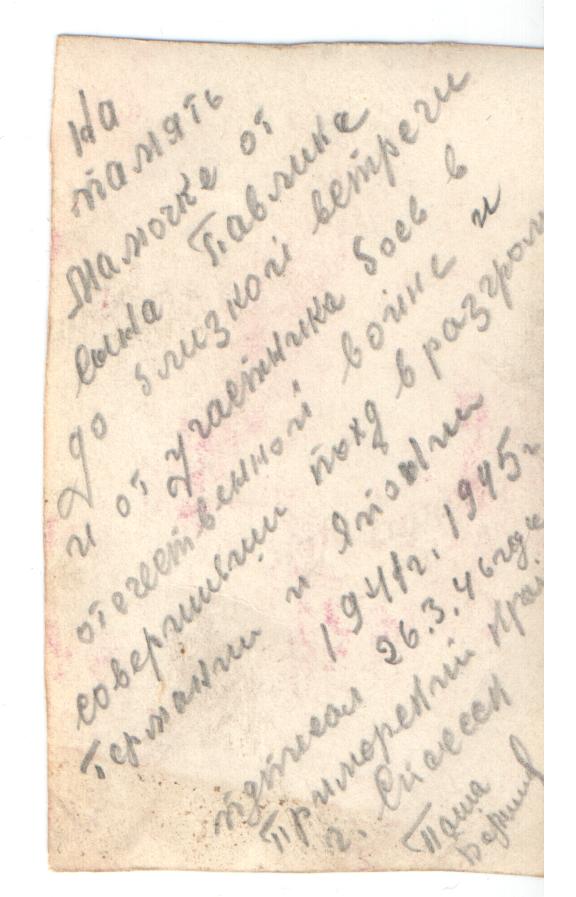 На
память
мамочке от
сына Павлика
до близкой встречи
и от участника боев в
отечественной войне и
совершивши поход в разгром
Германии и Японии
1941г. 1945г
26.3.46 года
Приморский край
г. Спасск
Паша